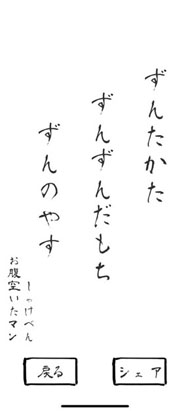 ずんたかた
ずんずんだもち
ずんのやす
しっけべん
お腹空いたマン
戻る
シェア